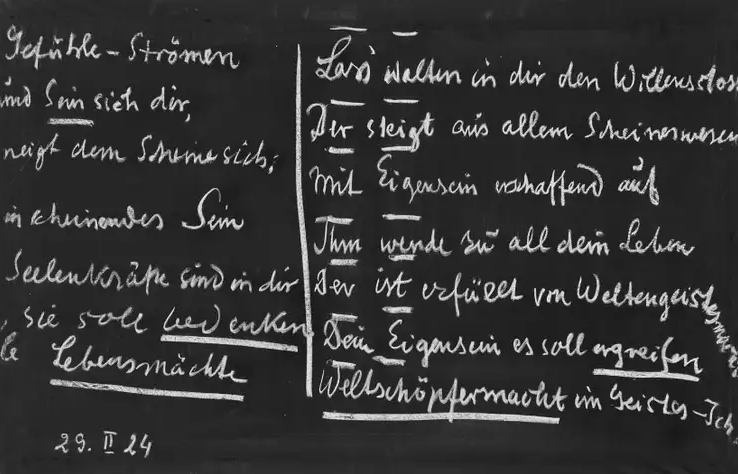 Gefühle – Strömen
und Sein sich dir,
neigt dem Scheine sich;
in scheinendes Sein
Seelenkräfte sind in dir
, sie soll bedenken
Lebensmächte
29. II 24
Lass walten in dir den Willensstoss
Der steigt aus allem Scheineswesen
Mit Eigensein erschaffend auf
Ihm wende zu all dein Leben
Der ist erfüllt von Weltengeistesmacht
Dein Eigensein es soll ergreifen
Weltschöpfermacht im Geistes–Ich